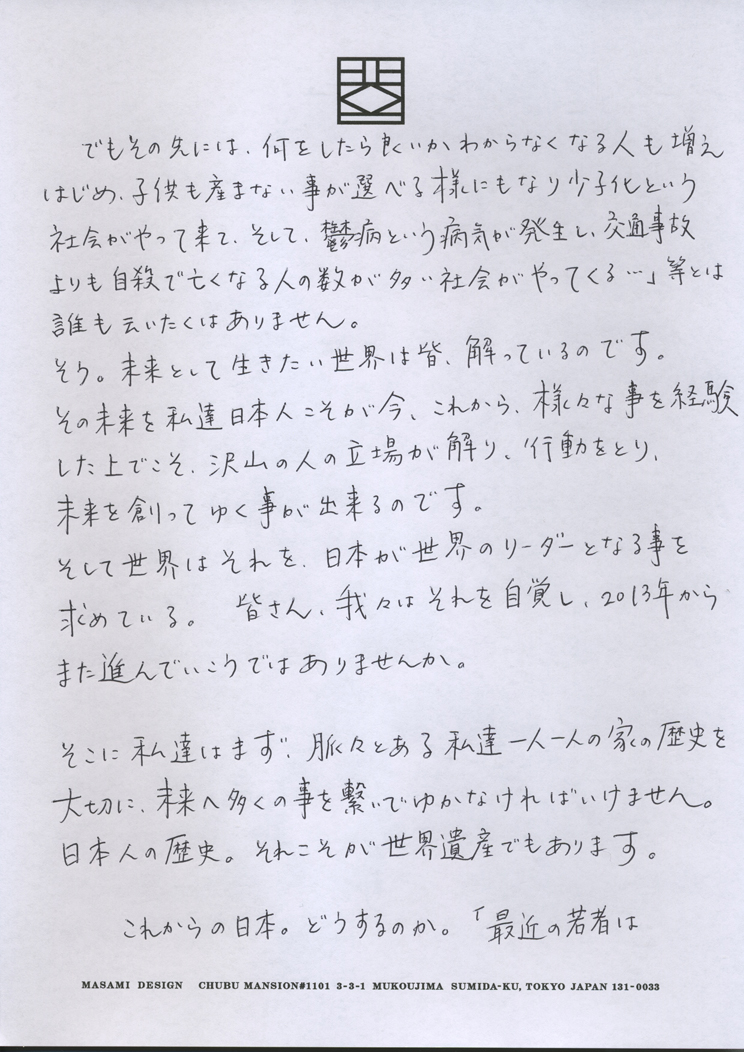 でもその先には、何をしたら良いかわからなくなる人も増え
はじめ、子供も産まない事が選べる様にもなり少子化という
社会がやって来て、そして、鬱病という病気が発生し、交通事故
よりも自殺で亡くなる人の数が多い社会がやってくる…」等とは
誰も云いたくはありません。
そう。未来として生きたい世界は皆、解っているのです。
その未来を私達日本人こそが今、これから、様々な事を経験
した上でこそ、沢山の人の立場が解り、行動をとり、
未来を創ってゆく事が出来るのです。
そして世界はそれを、日本が世界のリーダーとなる事を
求めている。 皆さん、我々はそれを自覚し、2013年から
また進んでいこうではありませんか。
そこに私達はまず、脈々とある私達一人一人の家の歴史を
大切に、未来へ多くの事を繋いでゆかなければいけません。
日本人の歴史。それこそが世界遺産でもあります。
これからの日本。どうするのか。「最近の若者は
MASAMI DESIGN CHUBU MANSION#1101 3-3-1 MUKOUJIMA SUMIDA-KU, TOKYO JAPAN 131-0033